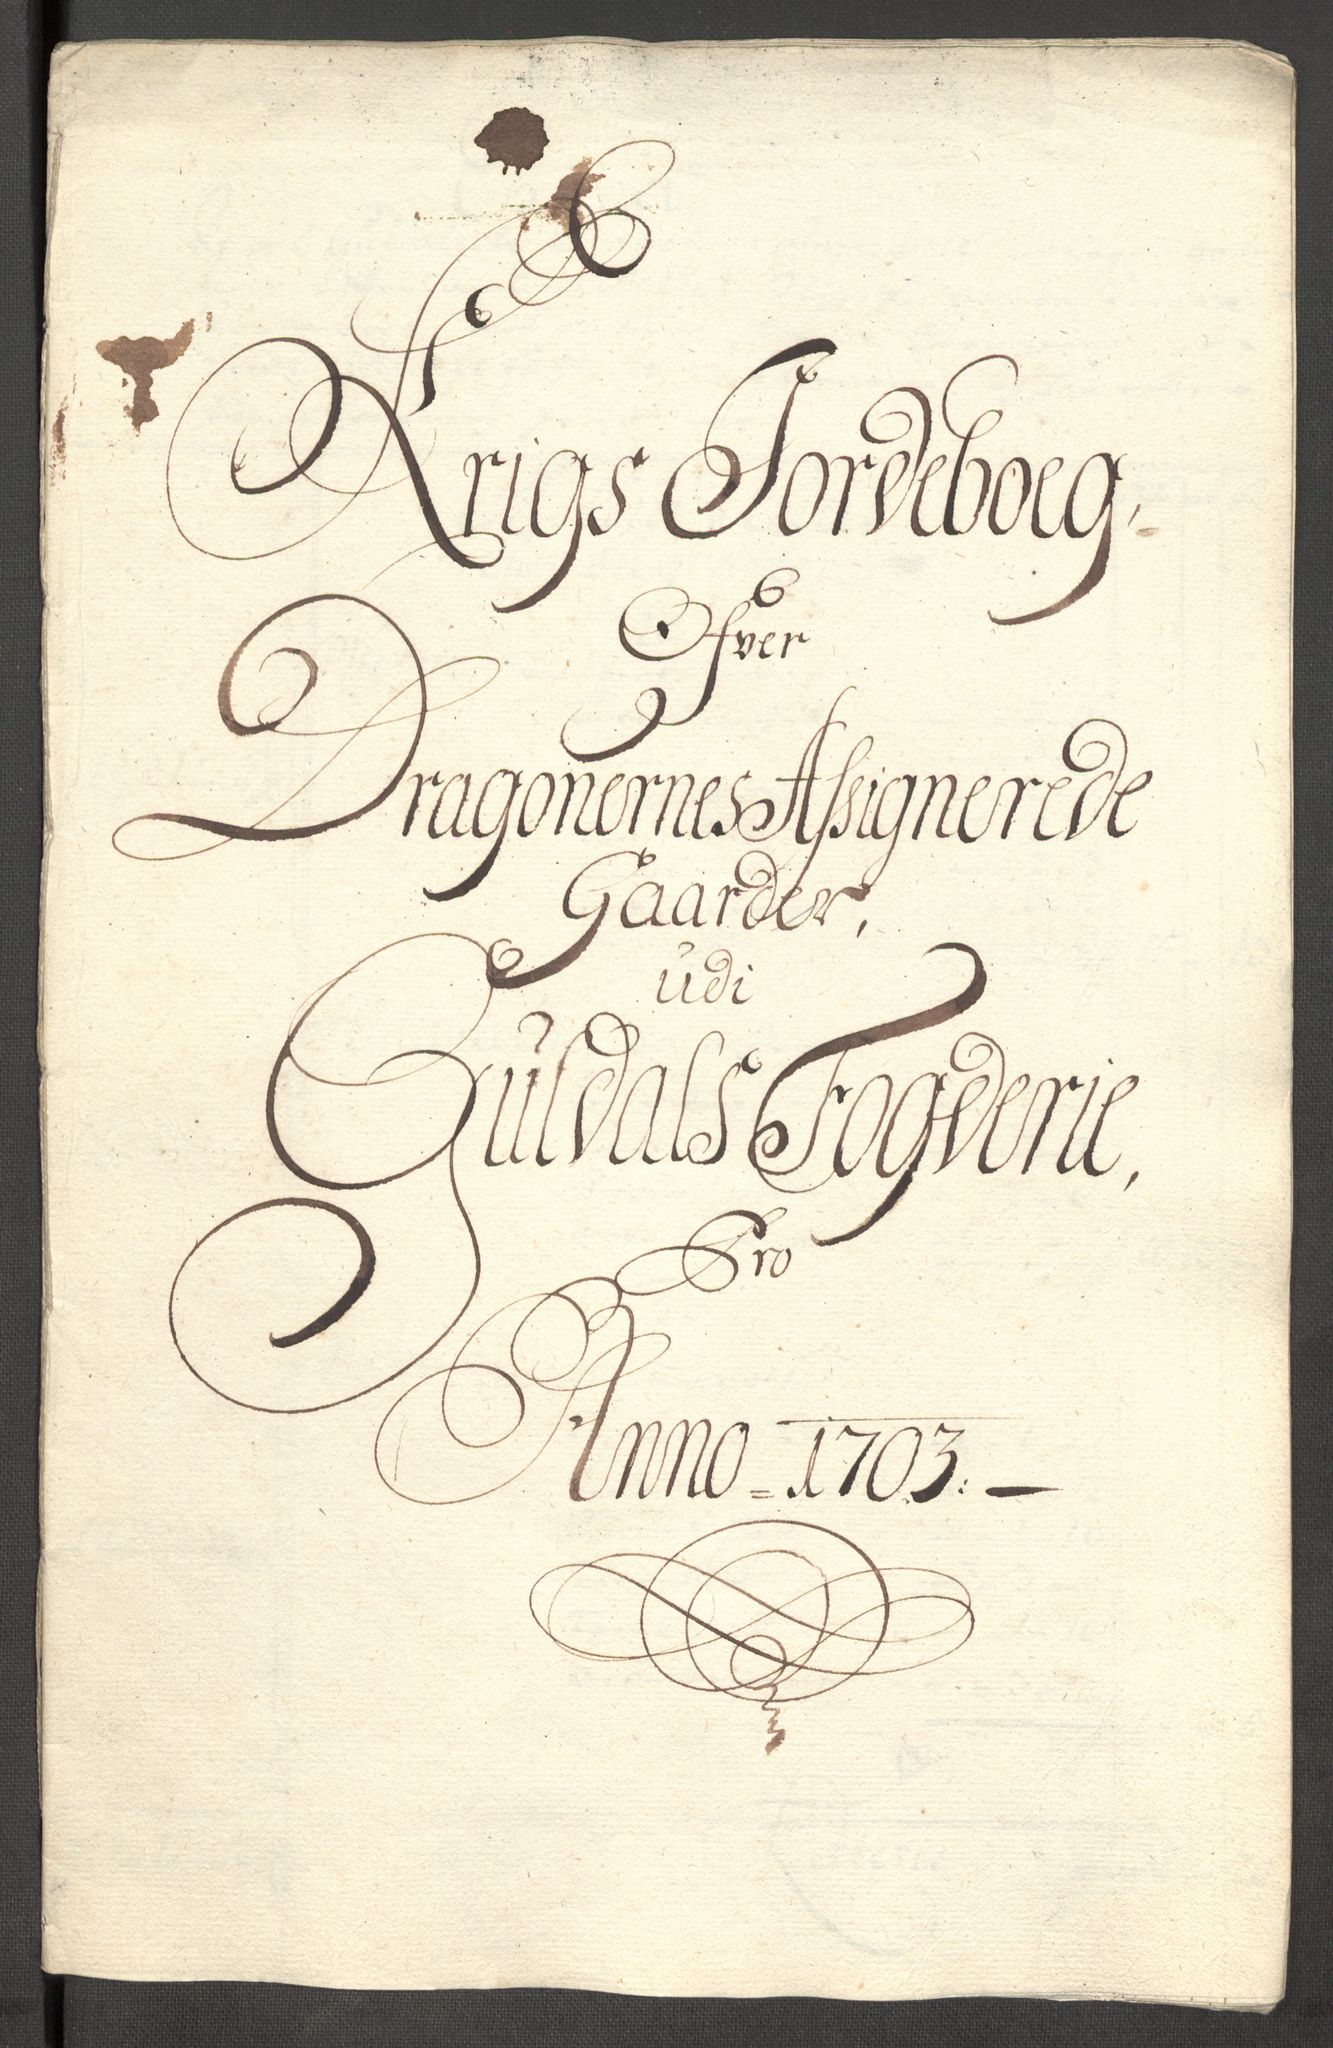 Krigs Jordeboeg,
Ofver
Dragonernes Assignerede
Gaarder,
udi
Guldals Fogderie,
Pro
Anno = 1703: —